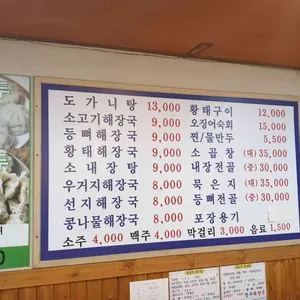 도가니탕 13,000
소고기해장국 9,000
등뼈해장국 9,000
황태해장국 9,000
소내장탕 9,000
우거지해장국 8,000
선지해장국 8,000
콩나물해장국 8,000
황태구이 12,000
오징어숙회 15,000
찐/물만두 5,500
소곱창 (대) 35,000
내장전골 (중) 30,000
묵은지 (대) 35,000
등뼈전골 (중) 30,000
포장용기
소주 4,000 맥주 4,000 막걸리 3,000 음료 1,500